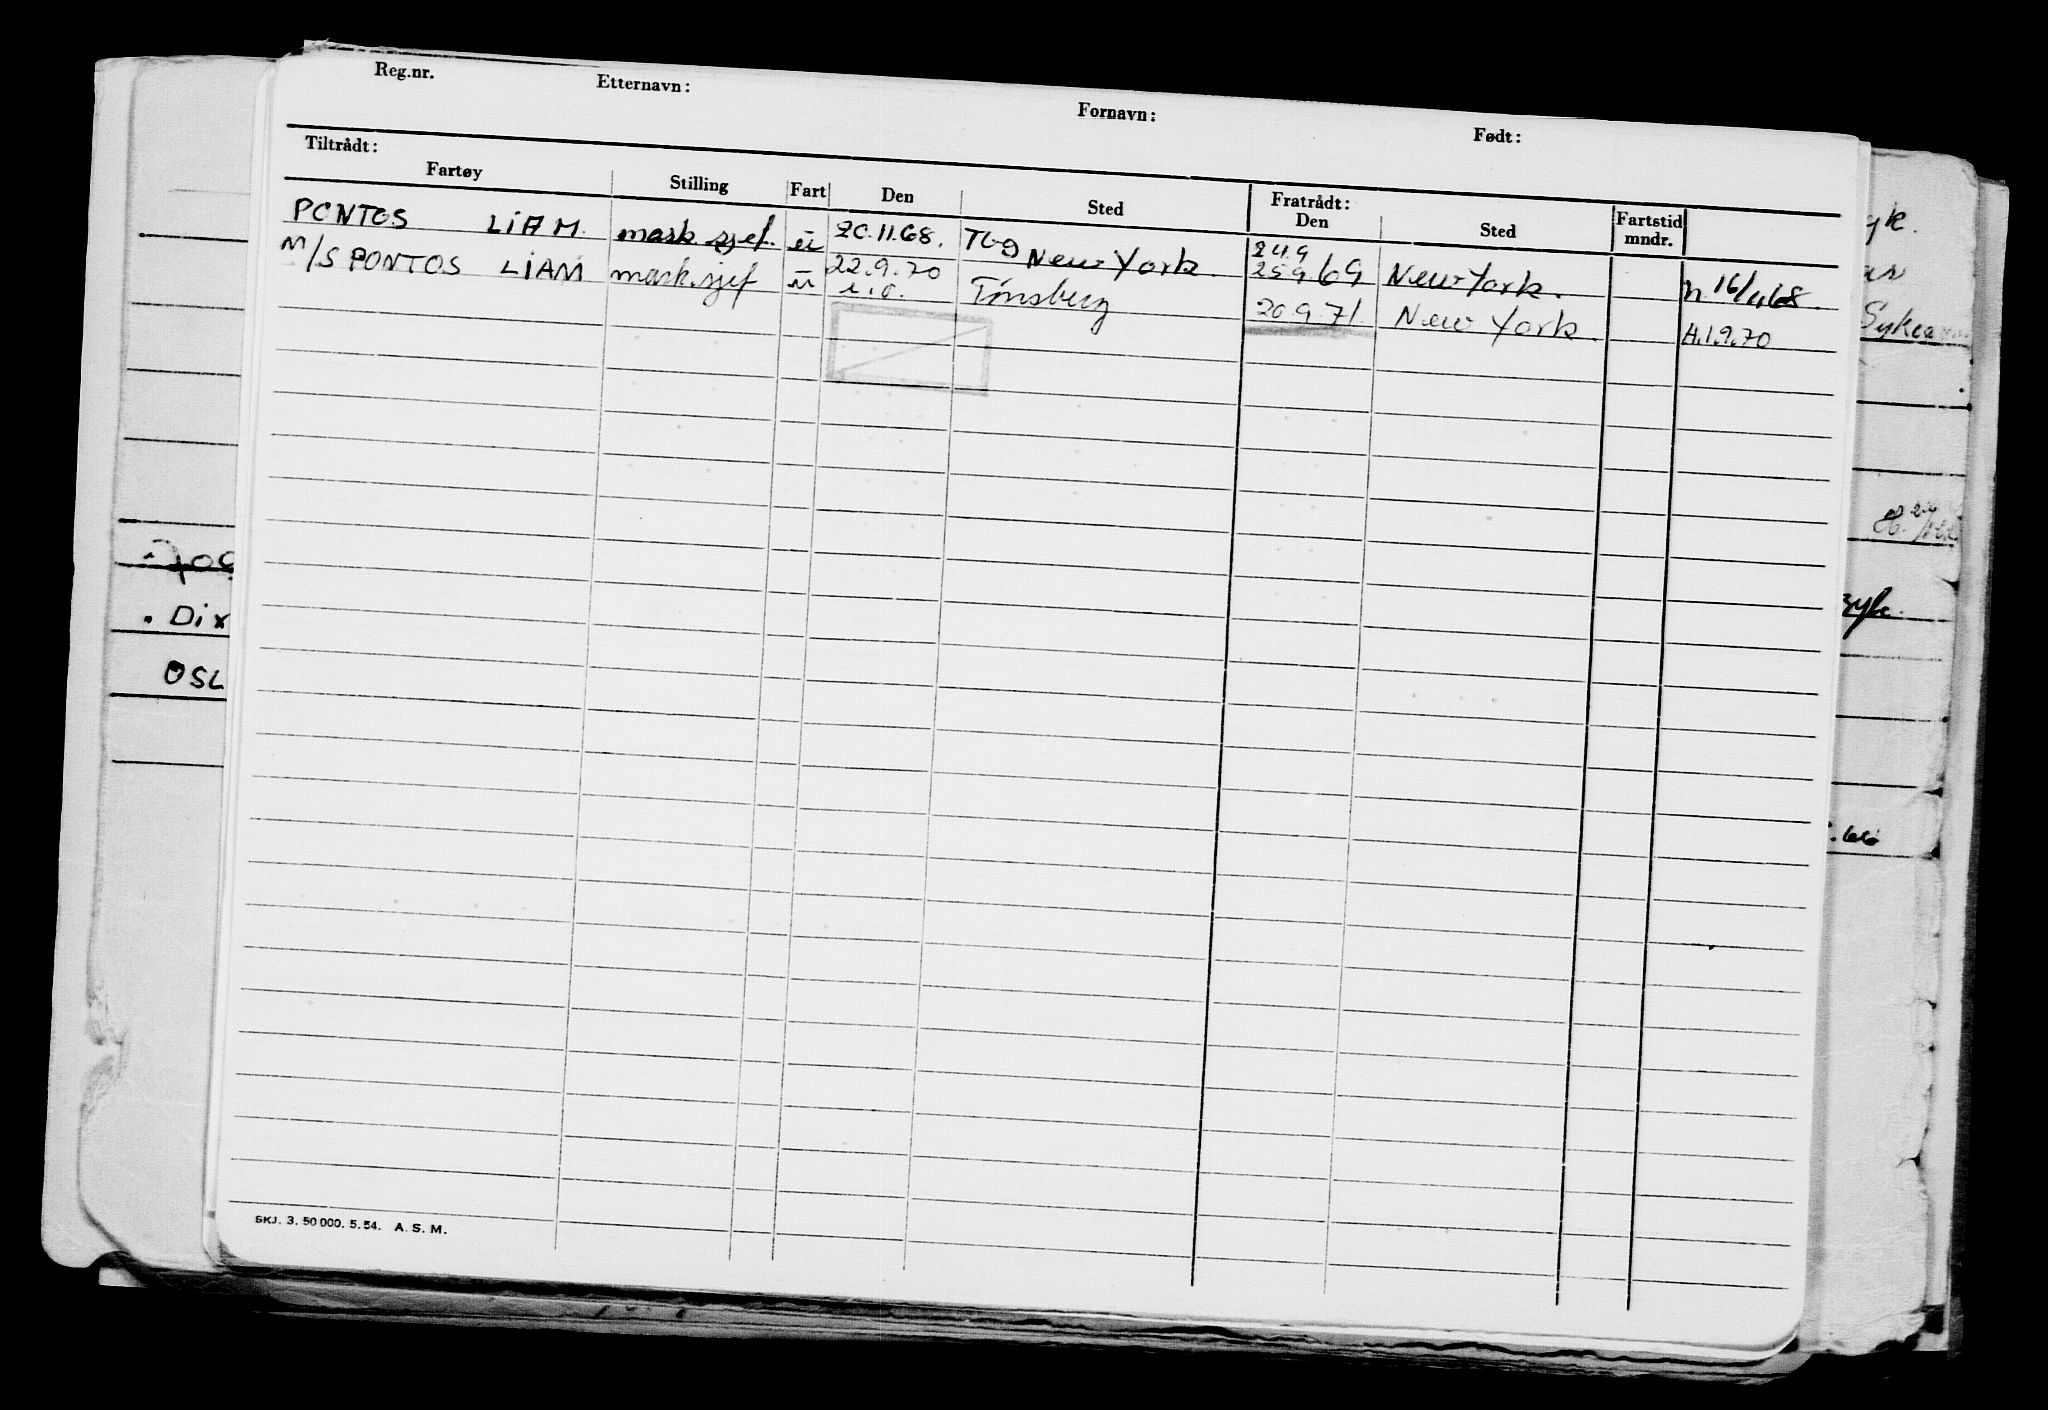 Reg.nr. Etternavn: Fornavn: Født:
Tiltrådt: Fratrådt:
Fartøy Stilling Fart Den Sted Den Sted Fartstid mndr.
PONTOS LiAM. mask sjef. ū 20.11.68. Tbg New York. 24.9 25.9.69 New York. h. 16/11 68.
M/S PONTOS LiAM mask.sjef ū 22.9.70 Tønsberg 20.9.71. New York. H.1.9.70
yk.
Sykea
. Dix
OSL
syk.
.66
SKJ. 3. 50 000. 5. 54. A. S. M.